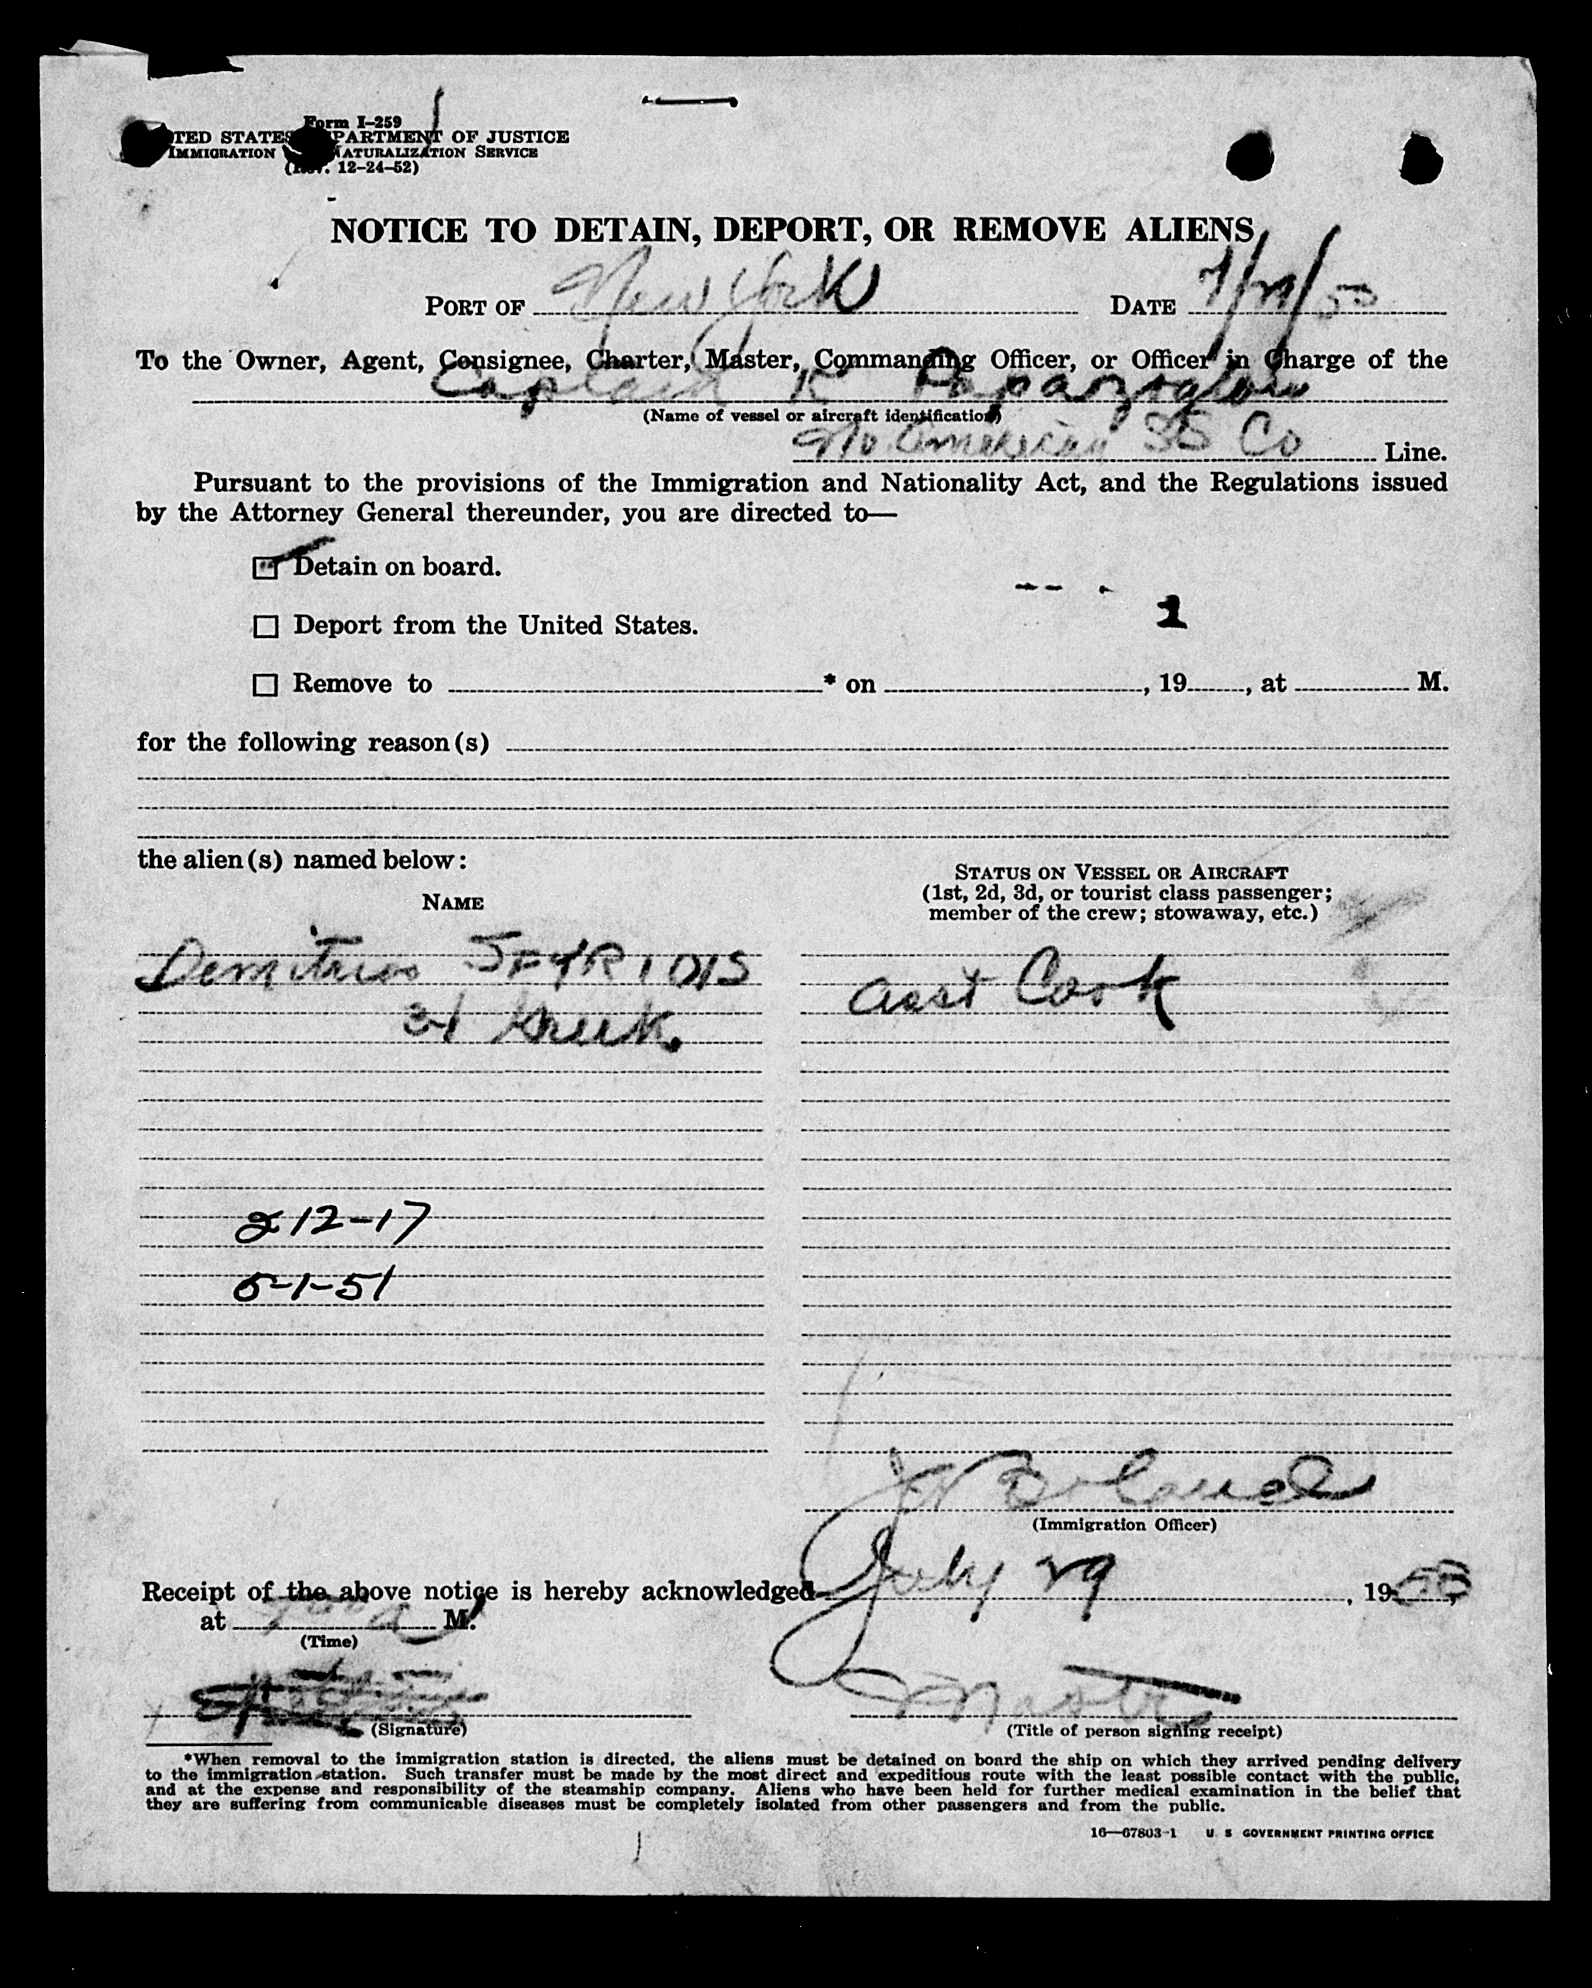 Form I-259
TED STATES PARTMENT OF JUSTICE
IMMIGRATION NATURALIZATION SERVICE
(Rev. 12-24-52)
NOTICE TO DETAIN, DEPORT, OR REMOVE ALIENS
PORT OF New York DATE 7/29/53
To the Owner, Agent, Consignee, Charter, Master, Commanding Officer, or Officer in Charge of the
Captain K Papazoglou
(Name of vessel or aircraft identification)
No American SS Co Line.
Pursuant to the provisions of the Immigration and Nationality Act, and the Regulations issued
by the Attorney General thereunder, you are directed to—
Detain on board.
1
Deport from the United States.
Remove to * on , 19 , at M.
for the following reason(s)
the alien(s) named below:
NAME
STATUS ON VESSEL OR AIRCRAFT
(1st, 2d, 3d, or tourist class passenger;
member of the crew; stowaway, etc.)
Demitrios SFYRIDIS
asst Cook
31 Greek.
212-17
5-1-51
J Boland
(Immigration Officer)
Receipt of the above notice is hereby acknowledged July 29, 1953,
at M.
(Time)
Master
(Signature)
(Title of person signing receipt)
*When removal to the immigration station is directed, the aliens must be detained on board the ship on which they arrived pending delivery
to the immigration station. Such transfer must be made by the most direct and expeditious route with the least possible contact with the public,
and at the expense and responsibility of the steamship company. Aliens who have been held for further medical examination in the belief that
they are suffering from communicable diseases must be completely isolated from other passengers and from the public.
16—67803-1 U S GOVERNMENT PRINTING OFFICE